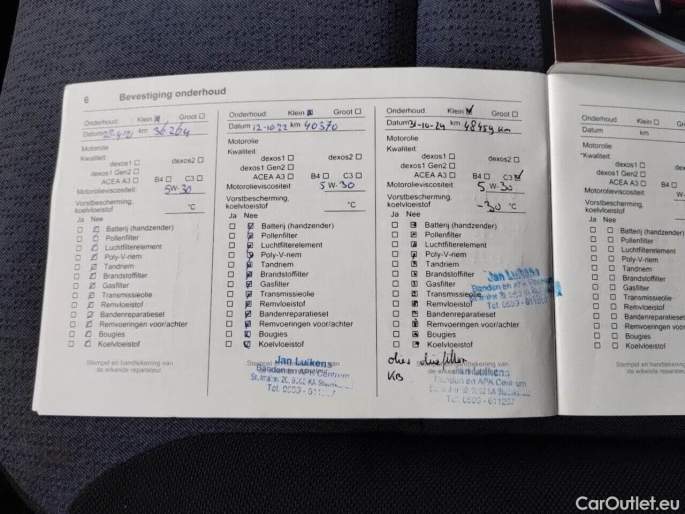 6 Bevestiging onderhoud
Onderhoud: Klein Groot
Datum km 36264
Motorolie
Kwaliteit
dexos1 dexos2
dexos1 Gen2
ACEA A3 B4 C3
Motorolieviscositeit 5W-30
Vorstbescherming,
koelvloeistof °C
Ja Nee
Batterij (handzender)
Pollenfilter
Luchtfilterelement
Poly-V-riem
Tandriem
Brandstoffilter
Gasfilter
Transmissieolie
Remvloeistof
Bandenreparatieset
Remvoeringen voor/achter
Bougies
Koelvloeistof
Stempel en handtekening van
de erkende reparateur
Onderhoud: Klein Groot
Datum 12-10-22 km 40370
Motorolie
Kwaliteit
dexos1 dexos2
dexos1 Gen2
ACEA A3 B4 C3
Motorolieviscositeit 5W-30
Vorstbescherming,
koelvloeistof °C
Ja Nee
Batterij (handzender)
Pollenfilter
Luchtfilterelement
Poly-V-riem
Tandriem
Brandstoffilter
Gasfilter
Transmissieolie
Remvloeistof
Bandenreparatieset
Remvoeringen voor/achter
Bougies
Koelvloeistof
Jan Luikens
Banden en APK Centrum
Onderhoud: Klein Groot
Datum 31-10-24 km 48459 km
Motorolie
Kwaliteit
dexos1 dexos2
dexos1 Gen2
ACEA A3 B4 C3
Motorolieviscositeit 5W-30
Vorstbescherming,
koelvloeistof -30 °C
Ja Nee
Batterij (handzender)
Pollenfilter
Luchtfilterelement
Poly-V-riem
Tandriem
Brandstoffilter
Gasfilter
Transmissieolie
Remvloeistof
Bandenreparatieset
Remvoeringen voor/achter
Bougies
Koelvloeistof
Jan Luikens
Banden en APK Centrum
olie, oliefilter
Jan Luikens
Banden en APK Centrum
Onderhoud: Klein
Datum km
Motorolie
Kwaliteit
dexos1
dexos1 Gen2
ACEA A3 B4
Motorolieviscositeit W-
Vorstbescherming,
koelvloeistof
Ja Nee
Batterij (handzender)
Pollenfilter
Luchtfilterelement
Poly-V-riem
Tandriem
Brandstoffilter
Gasfilter
Transmissieolie
Remvloeistof
Bandenreparatieset
Remvoeringen voor/achter
Bougies
Koelvloeistof
Stempel en handtekening
de erkende reparateur
CarOutlet.eu